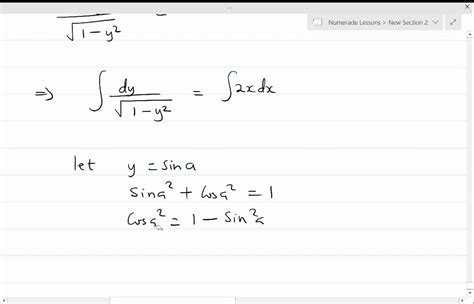 Numerade Lessons > New Section 2
√1-y² =
⇒ ∫ dy/√1-y² = ∫2xdx
let y = sina
sina² + cosa² = 1
cosa² = 1 - sin²a